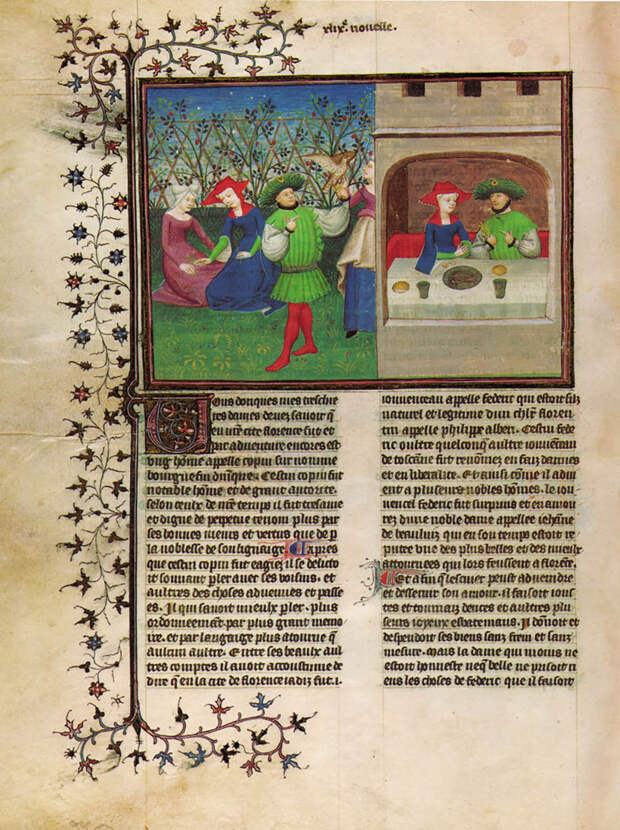 xlixᵉ. nouelle.
Vous donques mes treschie
res dames deuez sauoir q̄
en nr̄e cite florence fut et
par aduenture encores est
vng hōme appelle copin sur nomme
Cestui copin fut
notable hōme et de grant auctorite.
selon ceulx de nr̄e temps il fut tresame
et digne de perpetue renom plus par
ses bonnes meurs et vertus que de p
la noblesse de son lignaige. Apres
que cestui copin fut eagie il se delicto
it souuant pler auec ses voisins. et
aultres des choses aduenues et passe
es. Il qui sauoit mieulx pler. plus
ordonneement par plus grant memo
ire. et par langaige plus atourne q̄
aulcun aultre. Entre ses beaulx aul
tres comptes il auoit accoustume de
dire q̄ en la cite de florence iadiz fut .i.
iouuenceau appelle federic qui estoit filz
naturel et legitime dun chlr̄ floren
tin appelle philippe alberi. Cestui fede
ric oultre quelconq̄ aultre iouuencau
de toscane fut renōmez en faiz darmes
et en liberalite. Et ainsi cōme il adui
ent a pluseurs nobles hōmes. le iou
uencel federic fut surprins et enamou
rez dune noble dame appellee iehāne
de beaulieu qui en son temps estoit re
putee vne des plus belles et des mieulx
attournees qui lors feussent a florēce.
Et a fin q̄ lescuier peust aduendre
et desseruir son amour. il faisoit ious
tes et tournaiz dances et aultres plu
seurs ioyeux esbatemans. Il dōnoit et
despendoit ses biens sanz frein et sanz
mesure. Mais la dame qui moins ne
estoit honneste neq̄ belle ne prisoit ri
ens les choses de federic que il faisoit